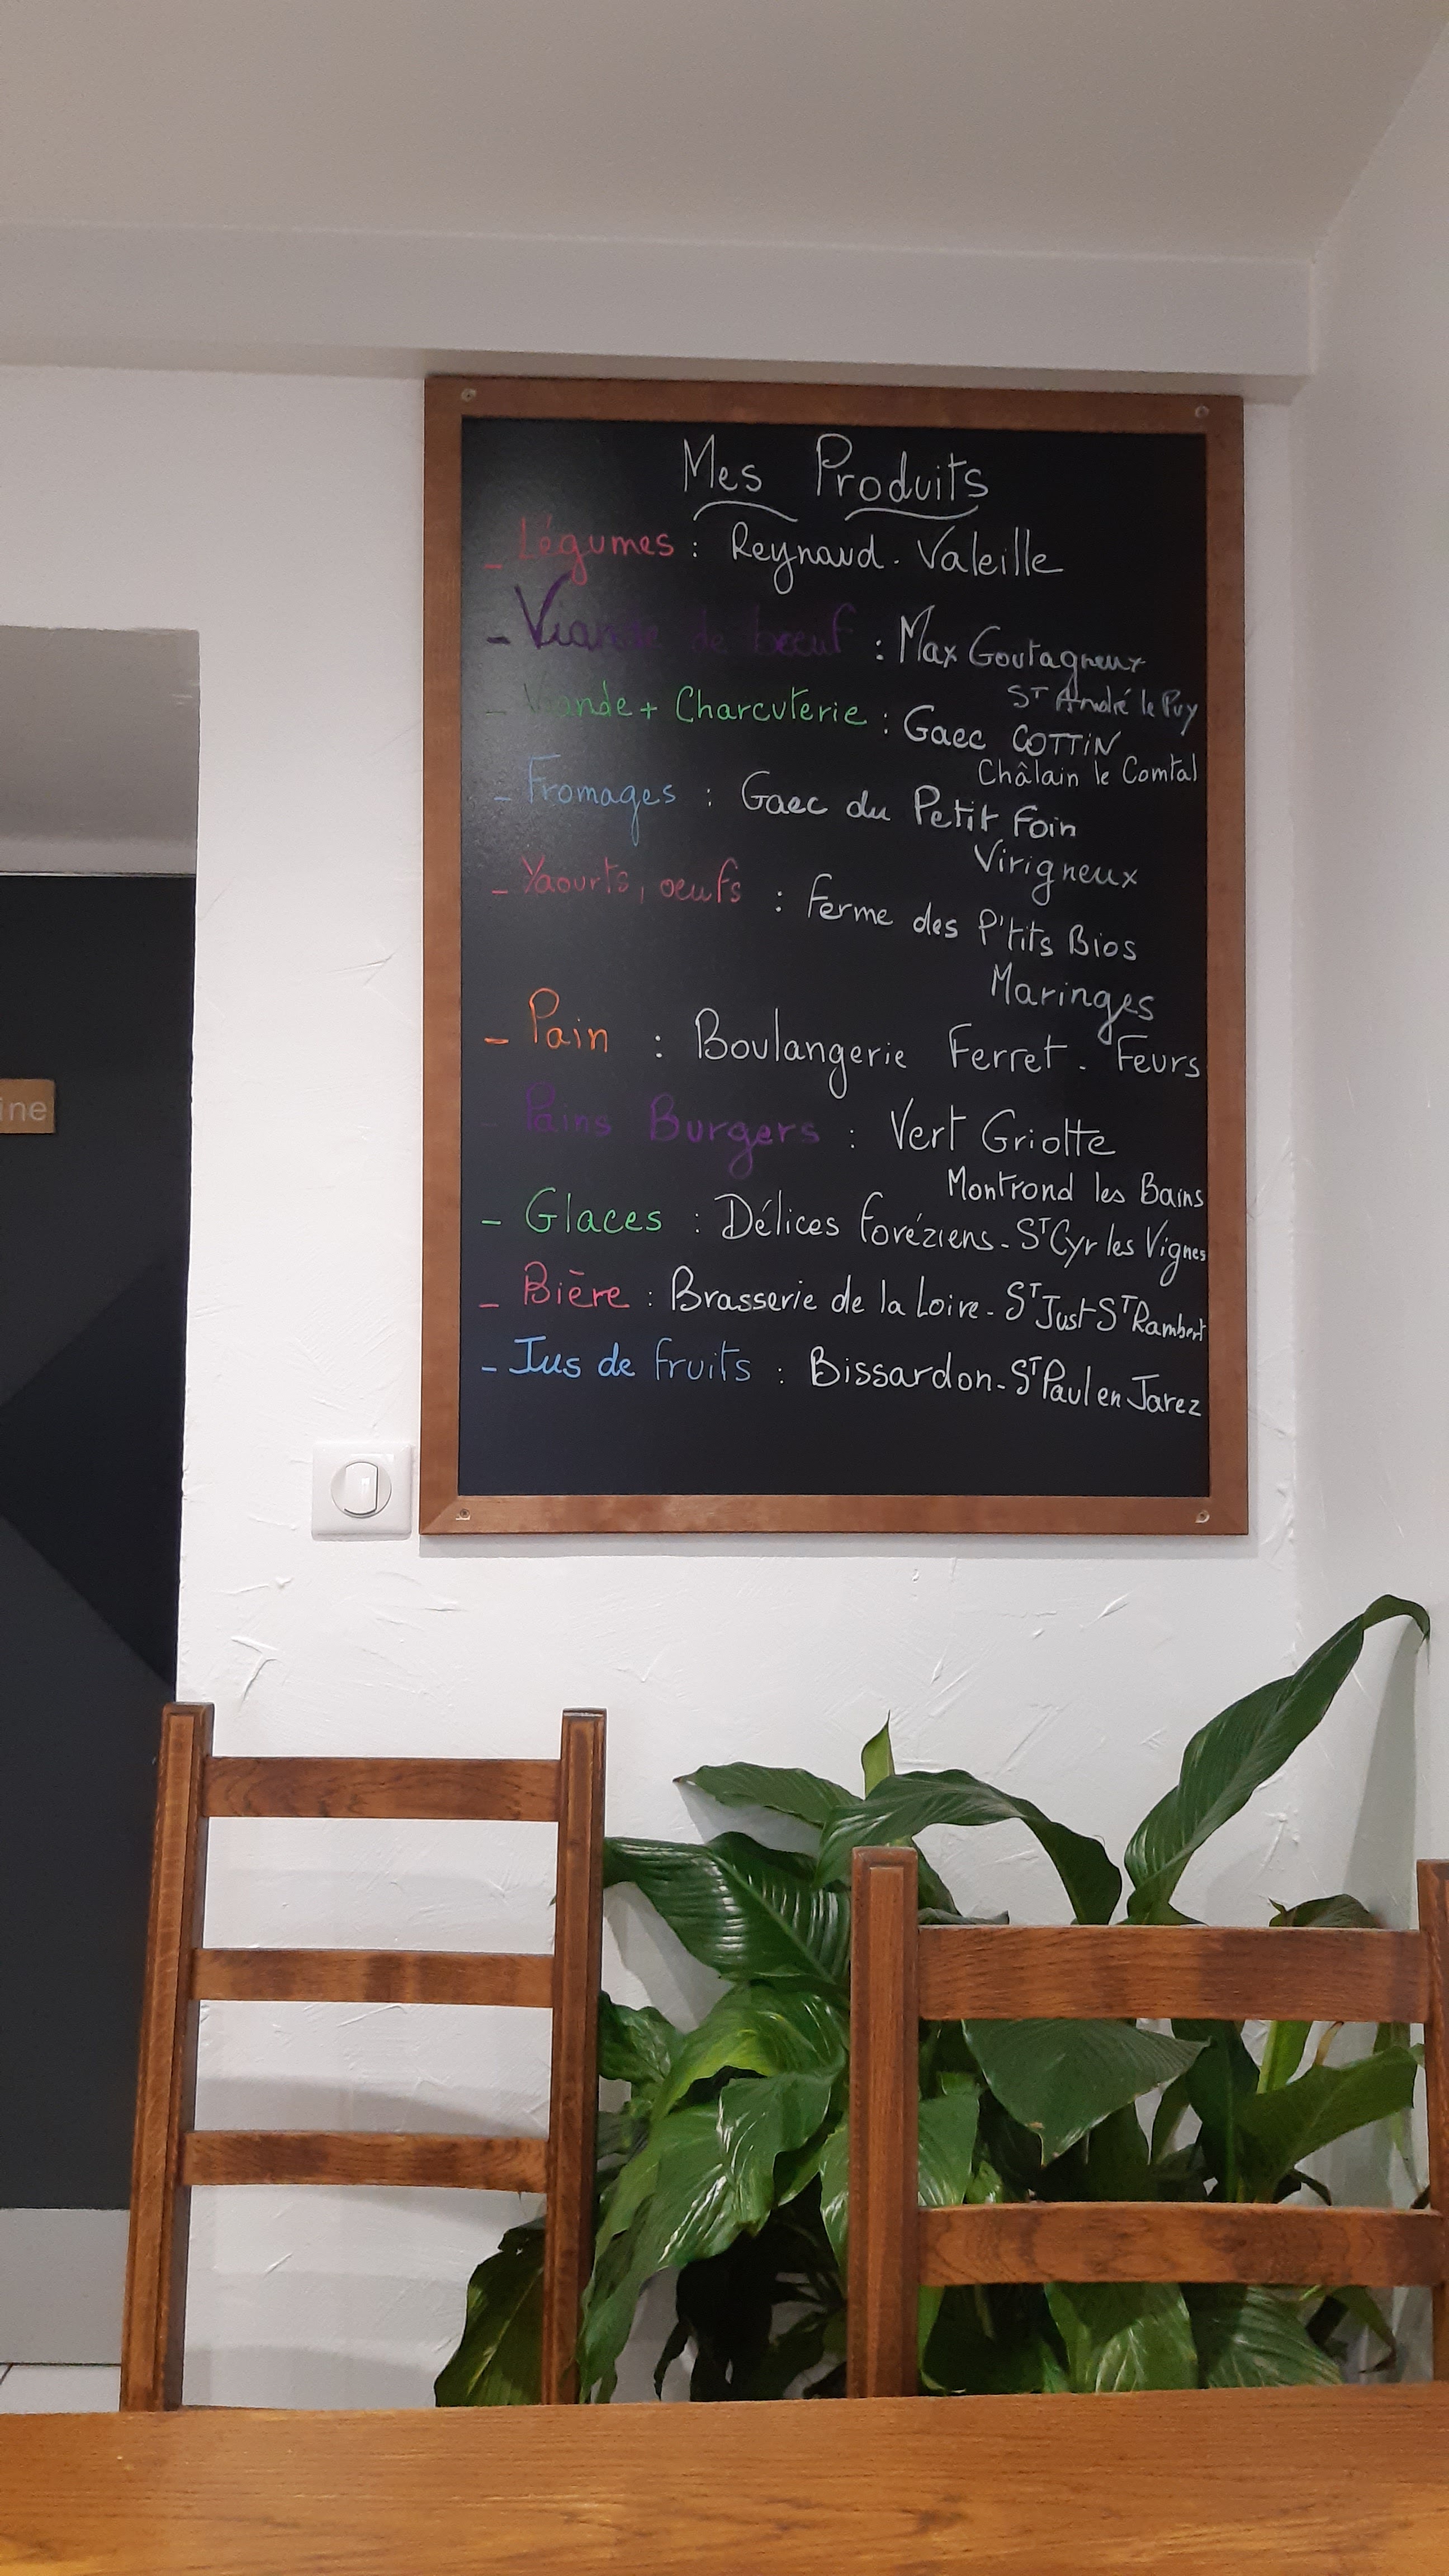 Mes Produits
- Légumes : Reynaud - Valeille
- Viande de boeuf : Max Goutagneux
St André le Puy
- Viande + Charcuterie : Gaec COTTIN
Châlain le Comtal
- Fromages : Gaec du Petit Foin
Virigneux
- Yaourts, oeufs : Ferme des P'tits Bios
Maringes
- Pain : Boulangerie Ferret - Feurs
- Pains Burgers : Vert Griotte
Montrond les Bains
- Glaces : Délices foréziens - St Cyr les Vignes
- Bière : Brasserie de la Loire - St Just St Rambert
- Jus de fruits : Bissardon - St Paul en Jarez
ine